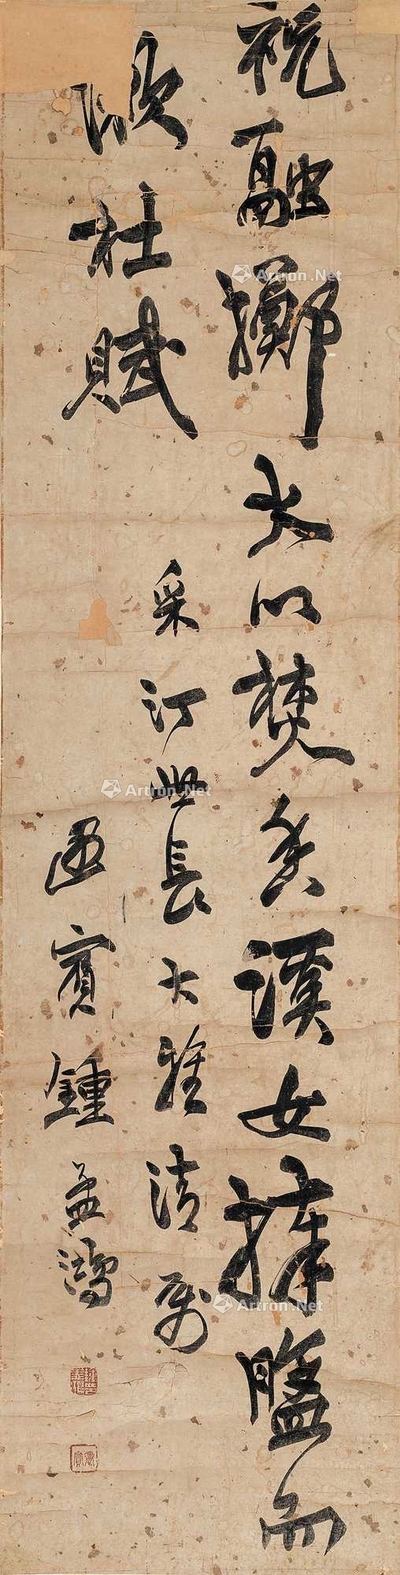 祝融擲火以焚香漢女捧盥而
杜賦
采汀世長大雅清屬
遇賓鍾孟鴻
Artron.Net
Artron.Net
Artron.Net